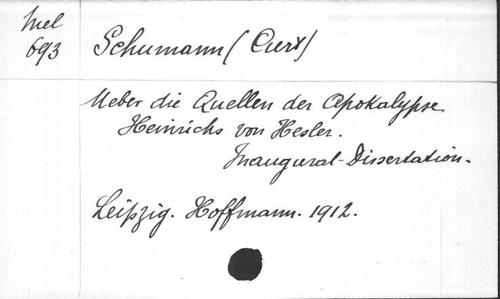 Mel
693
Schumann (Curt)
Ueber die Quellen der Apokalypse
Heinrichs von Hesler.
Inaugural-Dissertation.
Leipzig. Hoffmann. 1912.